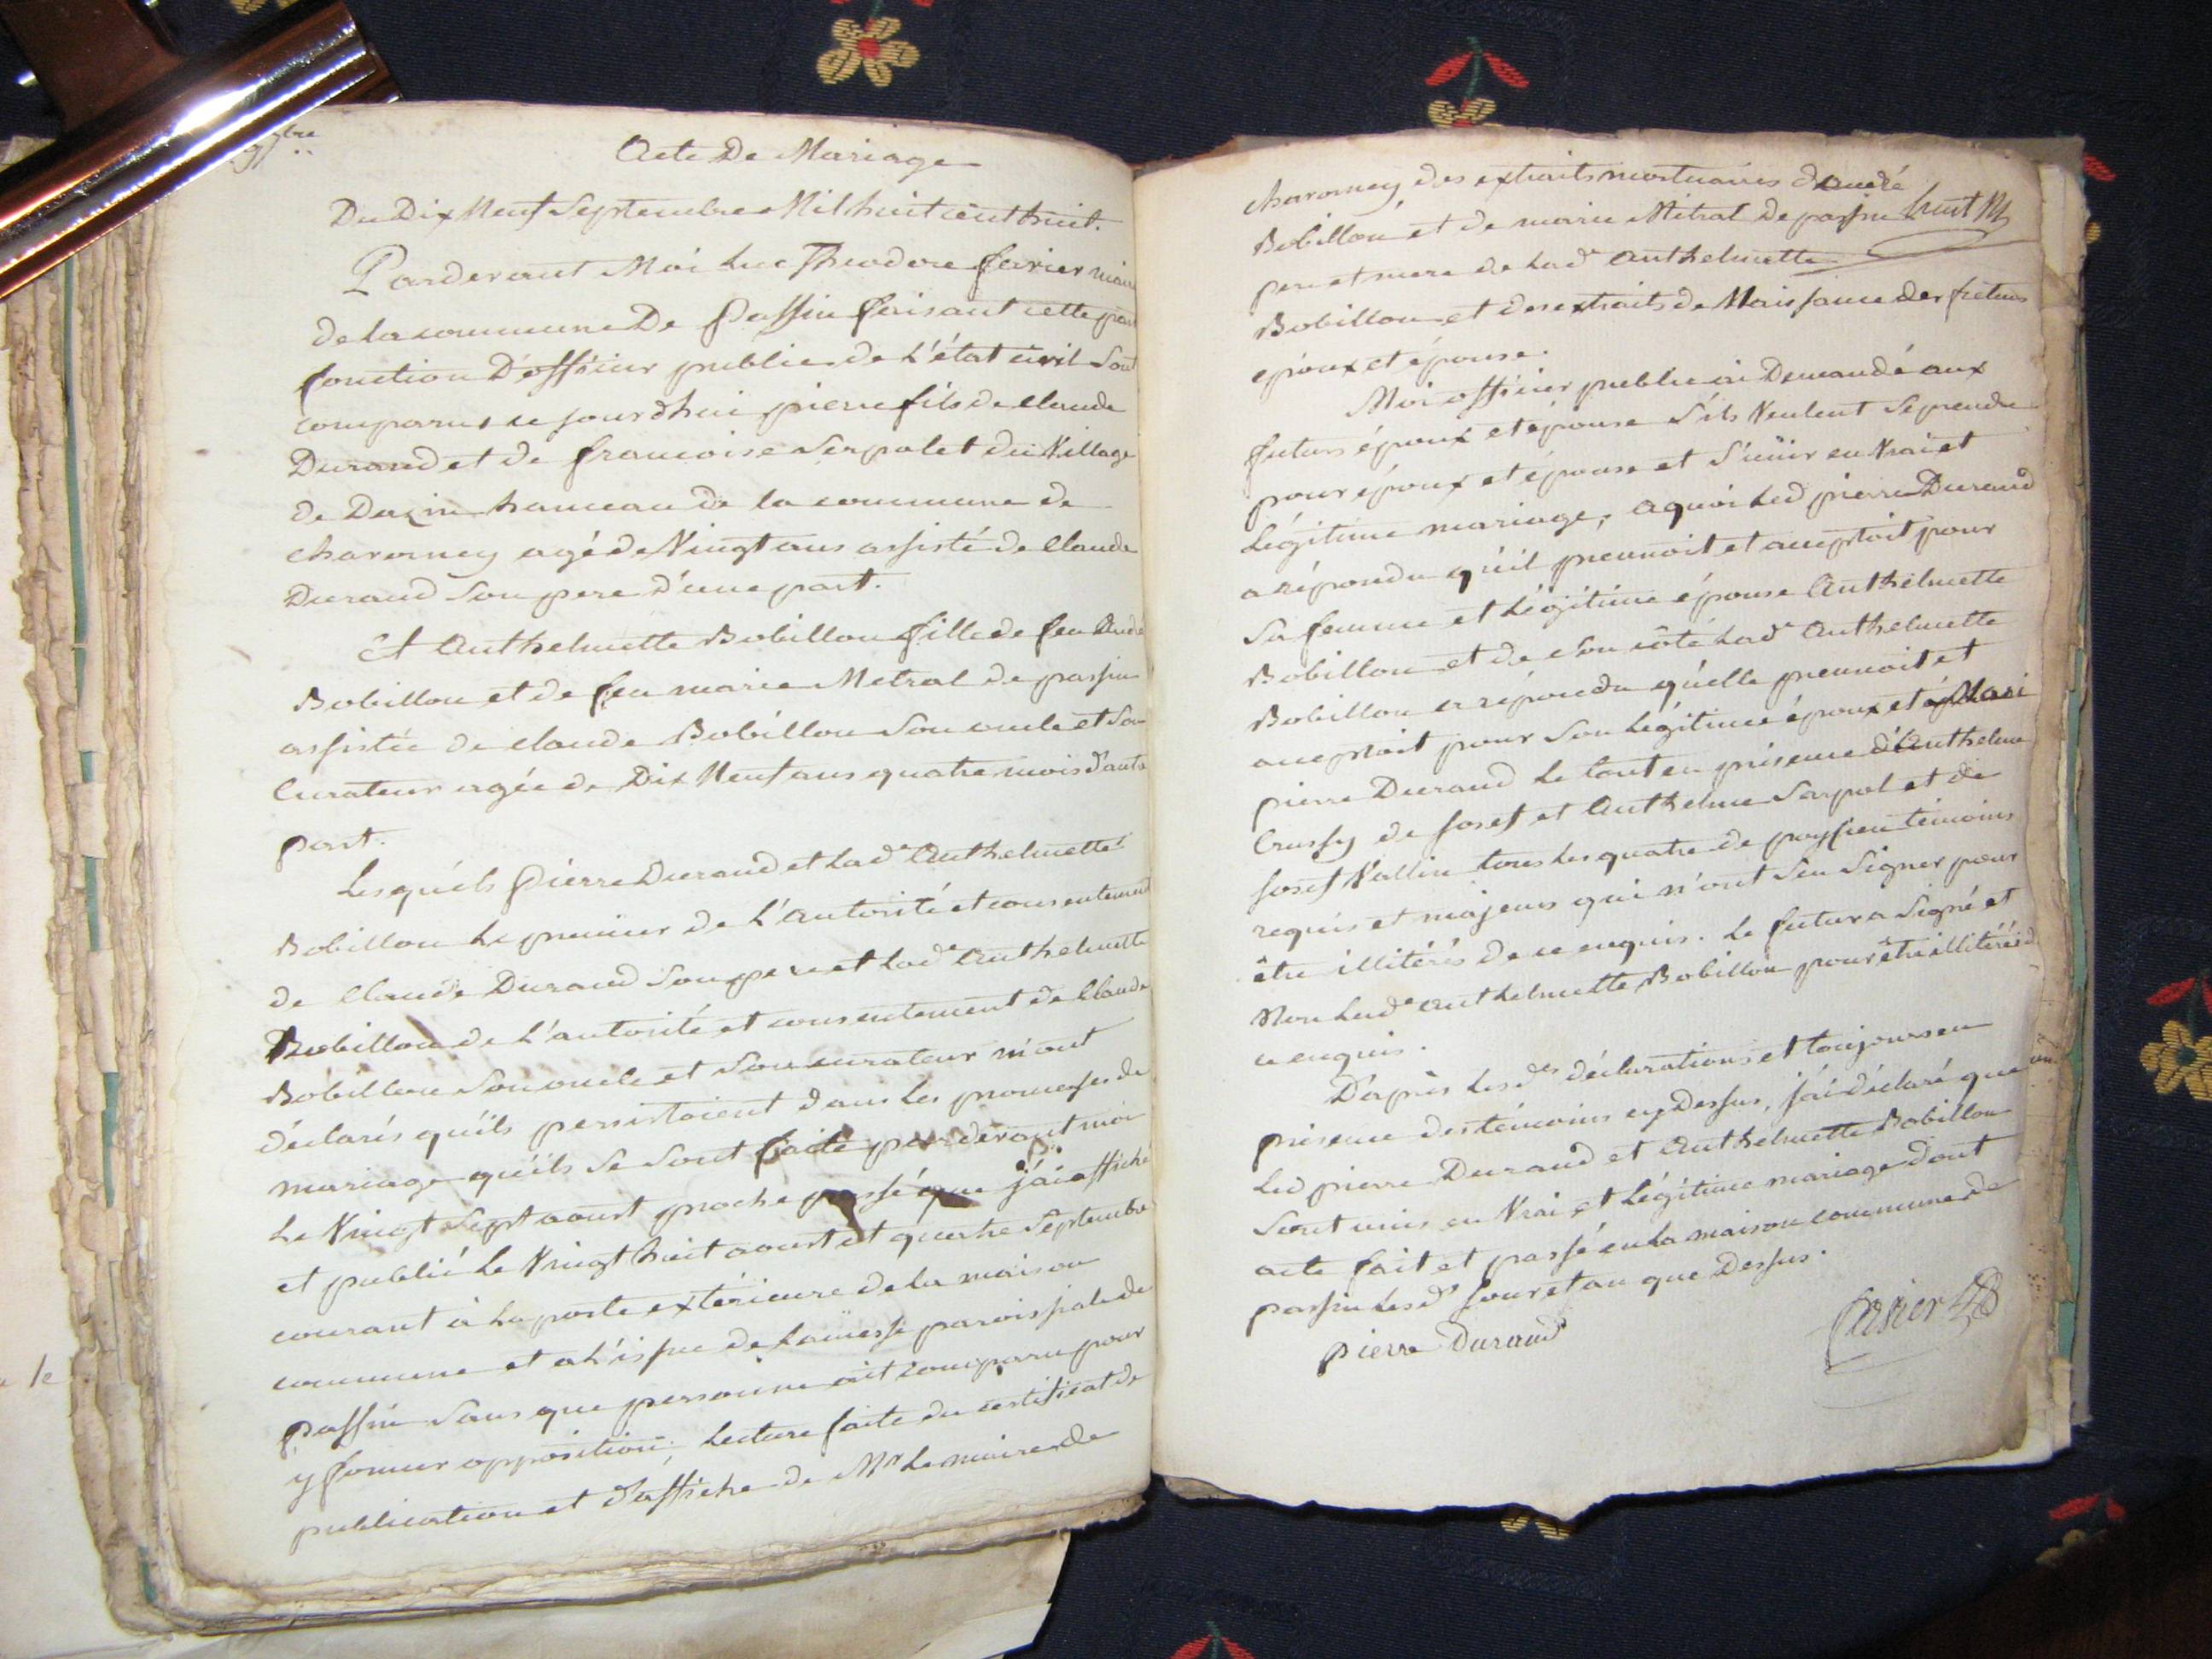 Acte De Mariage
Du Dix Neuf Septembre Mil huit cent huit.
Pardevant Moi Luc Theodore ferier mair
de la commune De Passin faisant cette part
fonction D'officier public de L'état civil Sont
comparus ce jourd'hui pierre fils de claude
Durand et de francoise Serpolet du Village
de Dazin hameau de la commune de
charorney agé de Vingt ans assisté de claude
Durand Son pere d'une part.
Et Anthelmette Bobillon fille de feu André
Bobillon et de feu marie Metral de passin
assistée de claude Bobillon Son oncle et Son
Curateur agée de Dix Neuf ans quatre mois d'autre
part.
Lesquels Pierre Durand et Lade Anthelmette
Bobillon Le premier de L'autorité et consentement
de Claude Durand Son pere et Lade Anthelmette
Bobillon de L'autorité et consentement de Claude
Bobillon Son oncle et Son curateur m'ont
déclarés qu'ils persistoient dans Les promesses de
mariage qu'ils Se Sont faite par devant moi
Le Vingt Sept aoust proche passé que j'ai affiché
et publié Le Vingt huit aoust et quatre Septembre
courant à La porte extérieure de La maison
commune et a L'issue de La messe paroissiale de
Passin Sans que personne ait comparu pour
y former opposition; Lecture faite du certificat de
publication et d'affiche de Mr Le maire de
charorney, des extraits mortuaires d'André
Bobillon et de marie Métral De passin
pere et mere de Lade Anthelmette
Bobillon et des extraits de Naissance des futurs
epoux et épouse.
Moi officier public ai Demandé aux
futurs époux et épouse S'ils Veulent Se prendre
pour époux et épouse et S'unir en Vrai et
Légitime mariage, a quoi Led pierre Durand
a répondu qu'il prennoit et acceptoit pour
Sa femme et Légitime épouse Anthelmette
Bobillon et de Son côté Lade Anthelmette
Bobillon a répondu qu'elle prennoit et
acceptoit pour Son Légitime époux et Mari
pierre Durand Le tout en présence d'Anthelme
Crussy de Josef et Anthelme Serpol et de
Josef Vallin tous Les quatre de passin temoins
requis et majeurs qui n'ont Seu Signer pour
être illitérés de ce enquis. Le futur a Signé et
Non Lade Anthelmette Bobillon pour être illitérée d
ce enquis.
D'après Lesdes déclarations et toujours en
présence des témoins cy Dessus, j'ai déclaré que
Led pierre Durand et Anthelmette Bobillon
Sont unis en Vrai et Légitime mariage dont
acte fait et passé en La maison commune de
passin Lesds Jour et an que Dessus.
pierre Durand